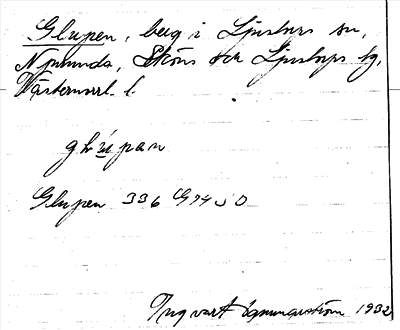 Glupen, berg i Ljustorps sn,
Njurunda, Sköns och Ljustorps tg,
Västernorrl. l.
glúpan
Glupen 336 G74 S O
Ingvart Hammarström 1932